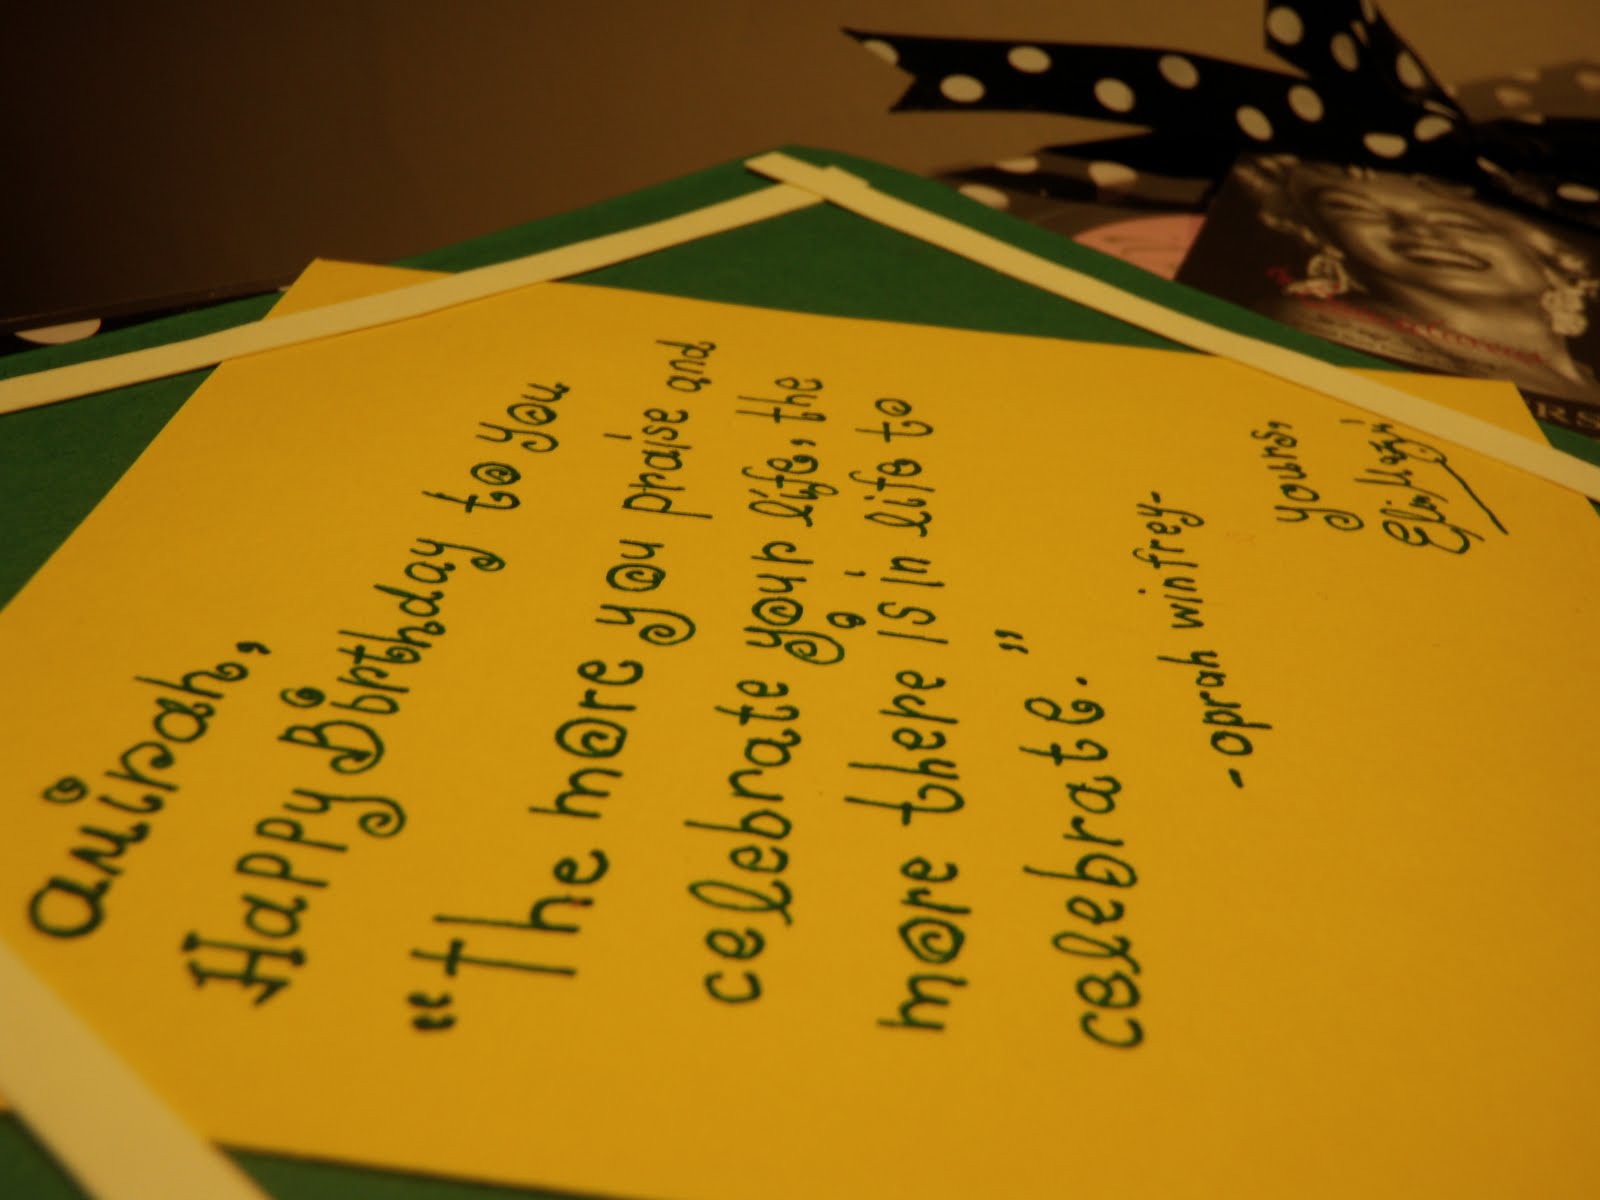 amirah,
Happy Birthday to you
"The more you praise and
celebrate your life, the
more there is in life to
celebrate."
-oprah winfrey-
yours,
RS